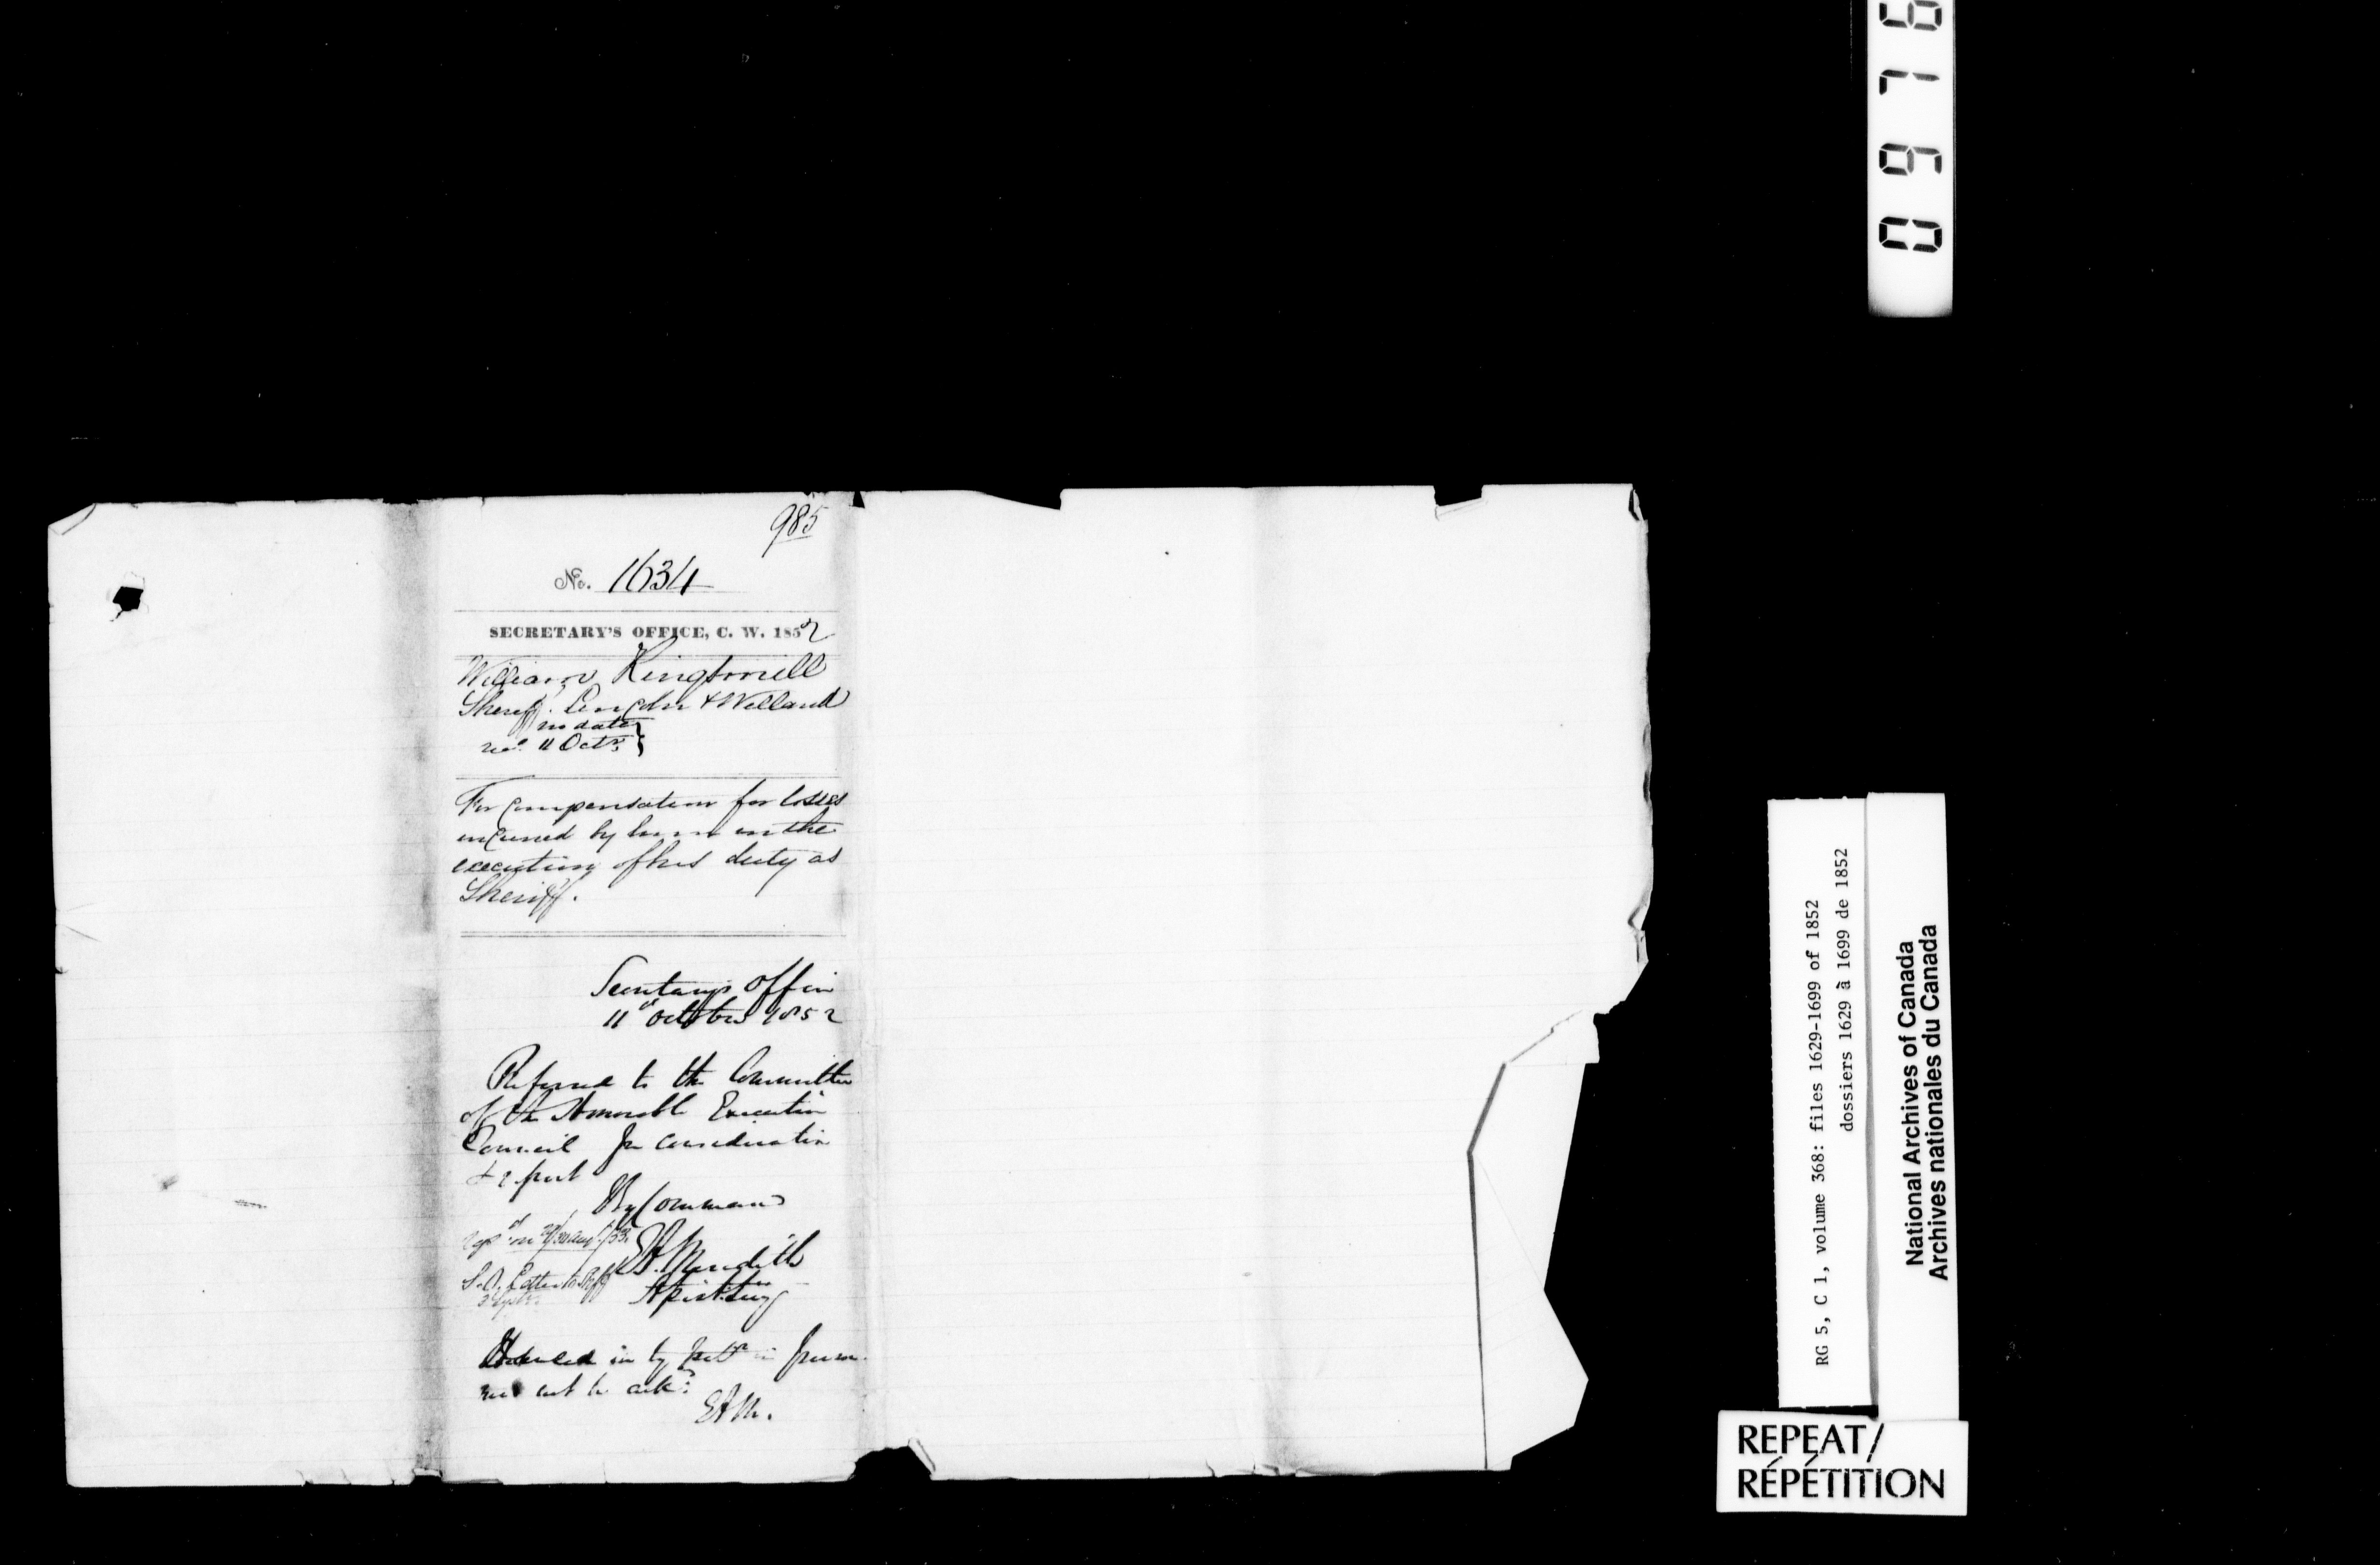 985
No. 1634
SECRETARY'S OFFICE, C. W. 1852
William Kingsmill
Sheriff. Lincoln & Welland
no date
recd. 11 Octr.
For Compensation for losses
incurred by him in the
execution of his duty as
Sheriff.
Secretary's Office
11 October 1852
Referred to the Committee
of the Honorable Executive
Council for Consideration
& report
By Command
E A. Meredith
Asst Secy
in by in person
not to ack:
EAM.
0976
RG 5, C 1, volume 368: files 1629-1699 of 1852
dossiers 1629 à 1699 de 1852
National Archives of Canada
Archives nationales du Canada
REPEAT/
RÉPÉTITION